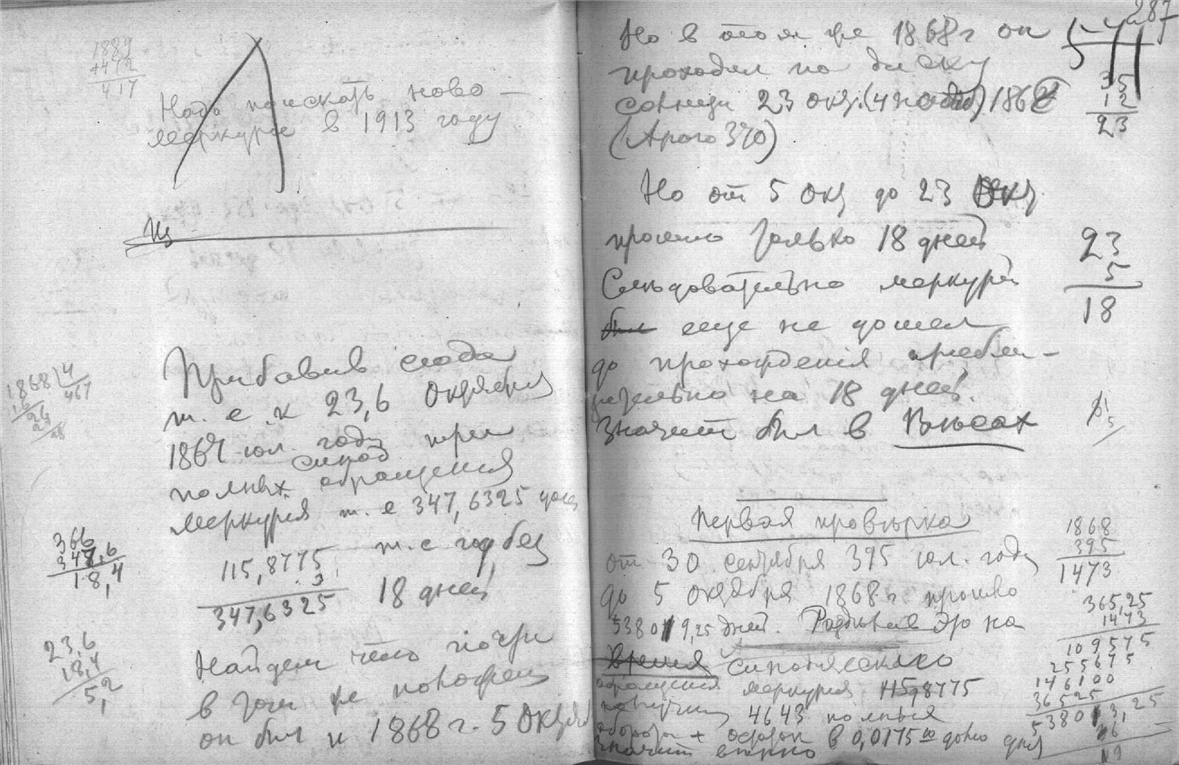 1889
417
Надо поискать ново-
меркурие в 1913 году
Прибавив сюда
т. е. к 23,6 Октября
1867 юл. году три
полных синод обращения
Меркурия т. е 347,6325 дней
115,8775
3
347,6325
т. е год без
18 дней
Найдем что почти
в том же положении
он был и 1868 г. 5 Октяб
1868 4
467
366
347,6
18,4
23,6
18,4
5,2
287
Но в том же 1868 г он
проходил по диску
солнца 23 окт. 186
(Араго 370)
35
12
23
Но от 5 окт до 23 Окт
прошло только 18 дней
Следовательно меркурий
был еще не дошел
до прохождения прибли-
зительно на 18 дней.
Значит был в Вѣсах
23
5
18
Первая провѣрка
от 30 сентября 395 юл. году
до 5 октября 1868 г. прошло
538019,25 дней. Разделив это на
время синодическаго
обращения меркурия 115,8775
получим 4643 полных
оборота + остаток в 0,0175 долю дня
значит верно
1868
395
1473
365,25
1473
109575
255675
146100
36525
538013,25
6
19